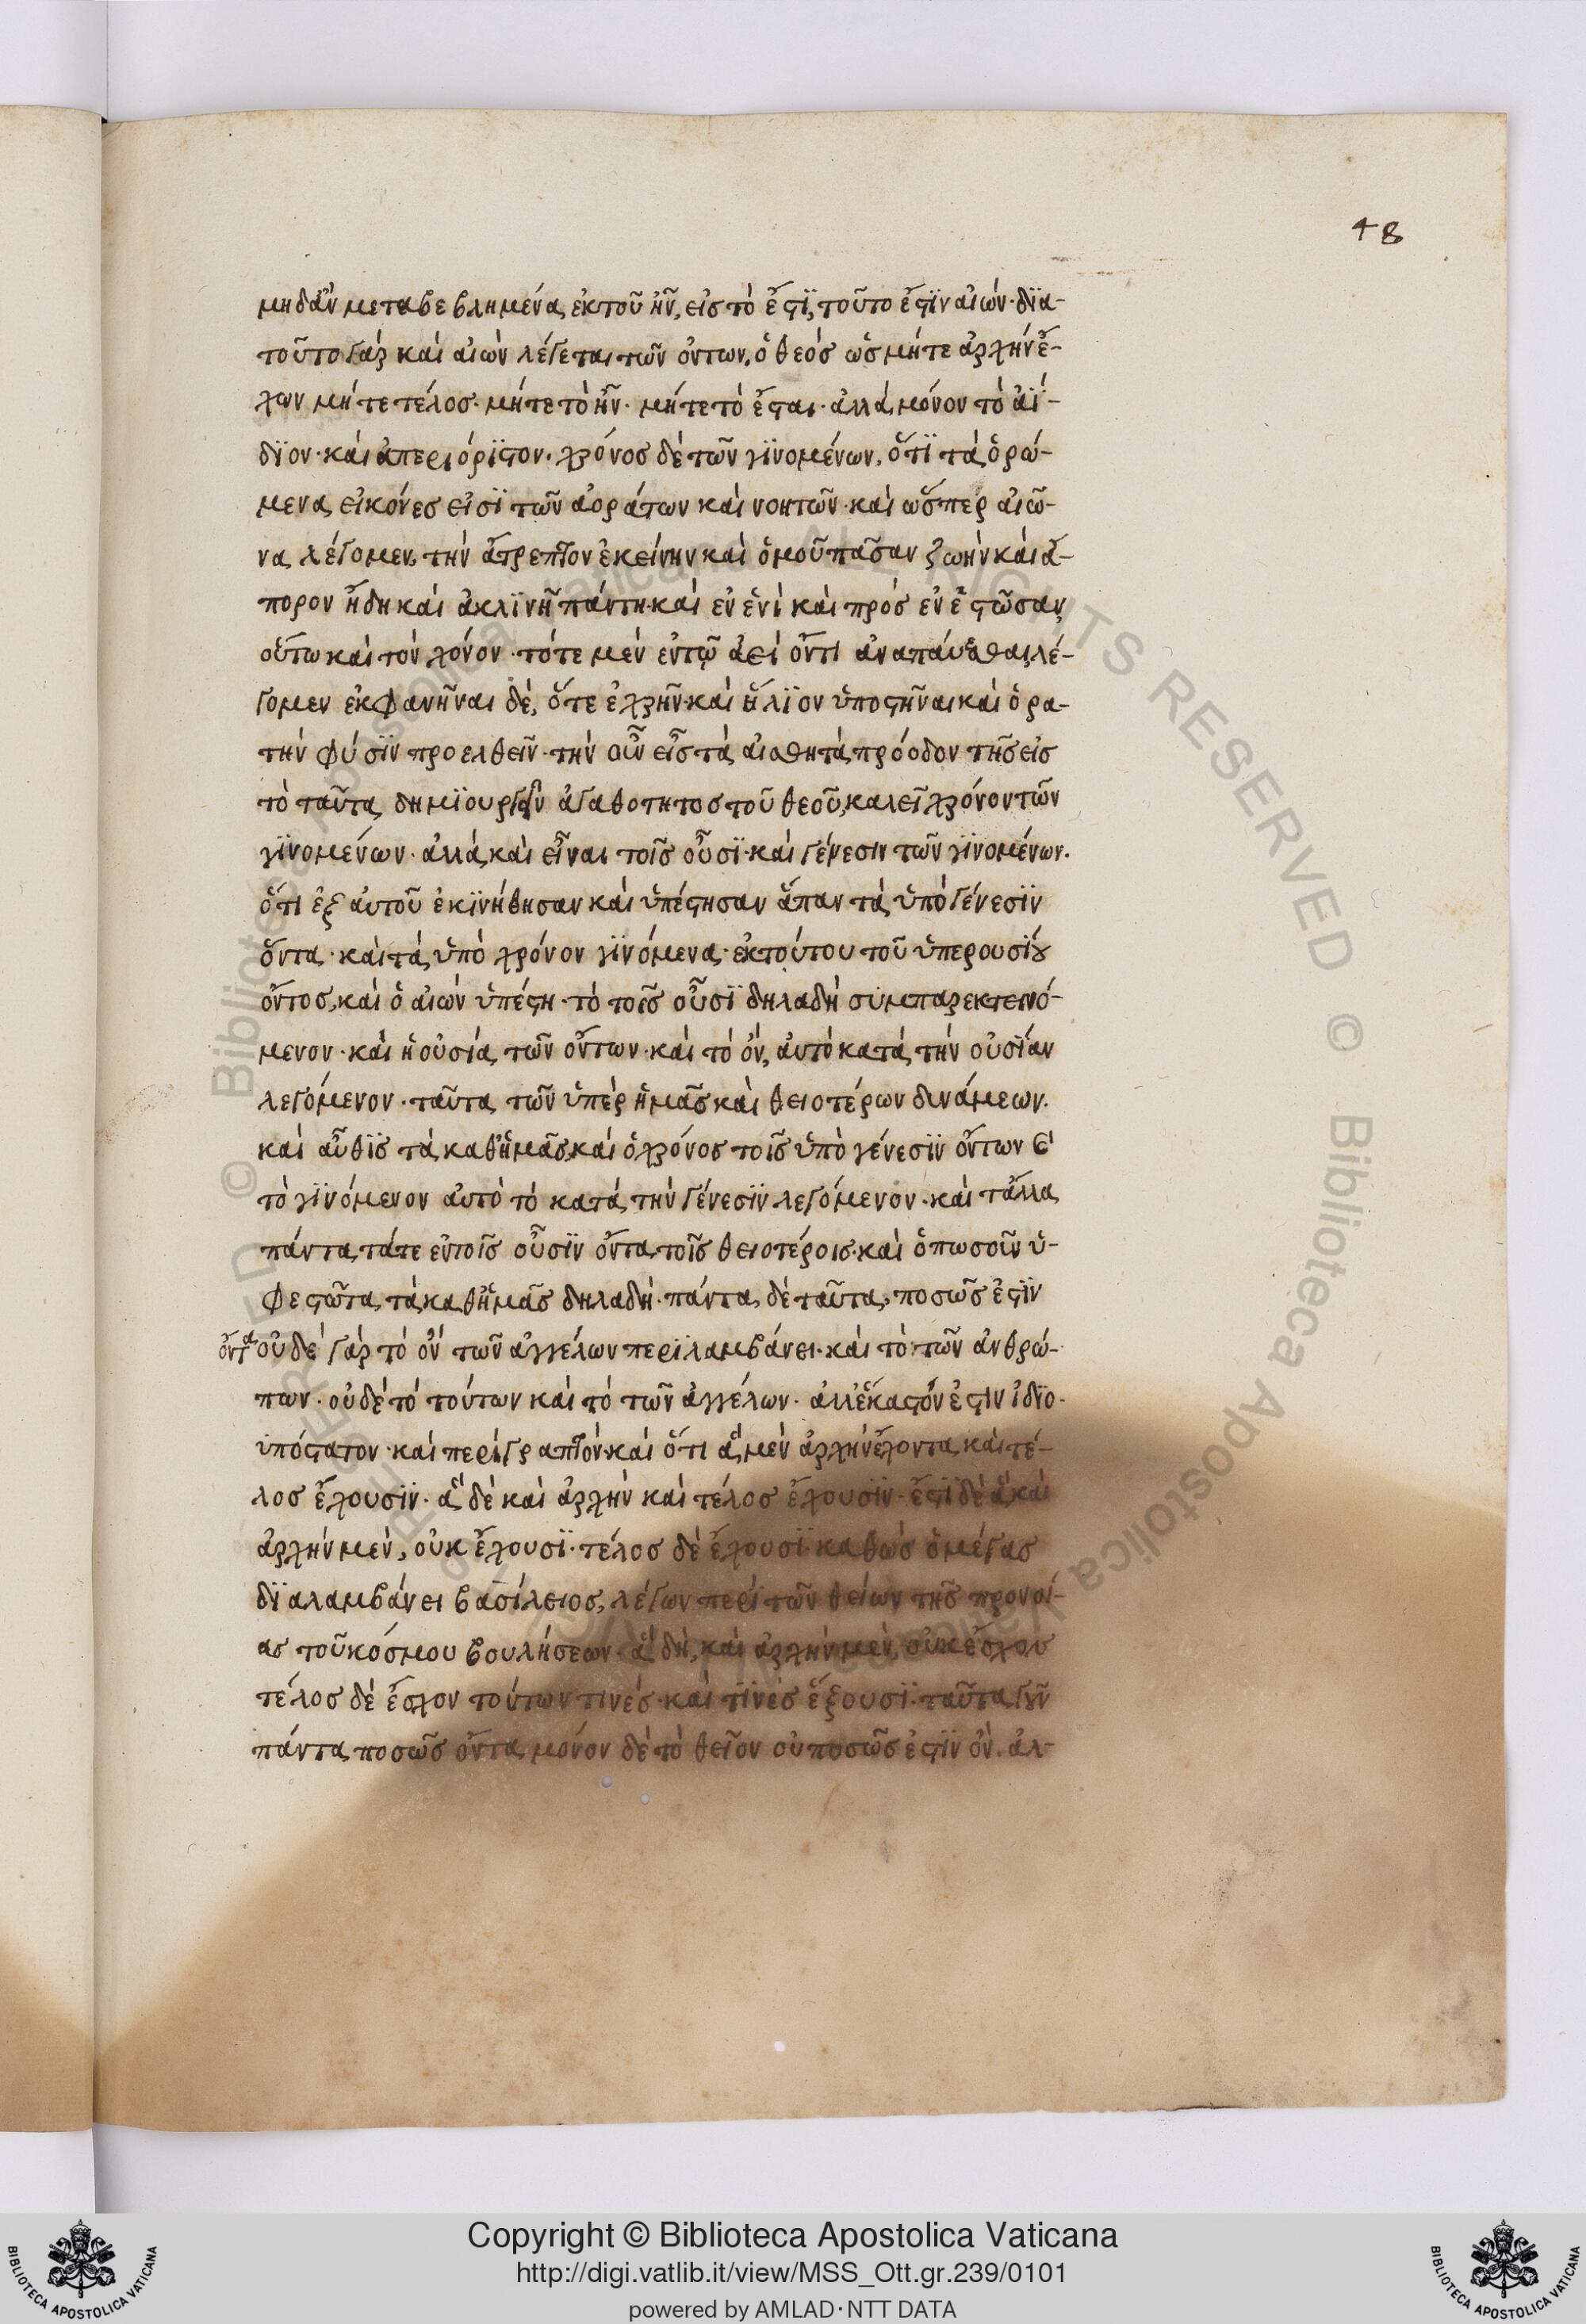 48
μηδὰν μεταβεβλημένα ἐκ τοῦ ἦν, εἰς τὸ ἔστϊ, τοῦτο ἔστϊν αἰών· δϊα-
τοῦτο γὰρ καὶ αἰὼν λέγεται τῶν ὄντων, ὁ θεὸς ὡς μήτε ἀρχὴν ἔ-
χων μήτε τέλος· μήτε τὸ ἦν· μήτε τὸ ἔσται· ἀλλὰ μόνον τὸ ἀΐ-
δϊον· καὶ ἀπεριόρϊστον· χρόνος δὲ τῶν γϊνομένων, ὅτϊ τὰ ὁρώ-
μενα εἰκόνες εἰσϊ τῶν ἀοράτων καὶ νοητῶν· καὶ ὥσπερ αἰῶ-
να λέγομεν, τὴν ἄτρεπτον ἐκείνην καὶ ὁμοῦ πᾶσαν ζωὴν καὶ ἄ-
πορον ἤδη καὶ ἀκλϊνῆ πάντη· καὶ ἐν ἑνὶ καὶ πρὸς ἓν ἑστῶσαν
οὕτω καὶ τὸν χόνον· τότε μὲν ἐν τῷ ἀεὶ ὄντι ἀναπαύεσθαι λέ-
γομεν ἐκφανῆναι δὲ, ὅτε ἐχρῆν· καὶ ἥλϊον ὑποστῆναι καὶ ὁρα-
τὴν φύσϊν προελθεῖν· τὴν οὖν εἰς τὰ αἰσθητὰ πρόοδον τῆς εἰς
τὸ ταῦτα δημϊουργεῖν ἀγαθότητος τοῦ θεοῦ, καλεῖ χρόνον τῶν
γϊνομένων· ἀλλὰ καὶ εἶναι τοῖς οὖσϊ· καὶ γένεσιν τῶν γϊνομένων.
ὅτι ἐξ αὐτοῦ ἐκϊνήθησαν καὶ ὑπέστησαν ἅπαντα ὑπὸ γένεσϊν
ὄντα· καὶ τὰ ὑπὸ χρόνον γϊνόμενα· ἐκ τούτου τοῦ ὑπερουσίου
ὄντος, καὶ ὁ αἰὼν ὑπέστη· τὸ τοῖς οὖσϊ δηλαδὴ συμπαρεκτεινό-
μενον· καὶ ἡ οὐσία τῶν ὄντων· καὶ τὸ ὄν, αὐτὸ κατὰ τὴν οὐσίαν
λεγόμενον· ταῦτα τῶν ὑπὲρ ἡμᾶς καὶ θειοτέρων δυνάμεων.
καὶ αὖθϊς τὰ καθ' ἡμᾶς, καὶ ὁ χρόνος τοῖς ὑπὸ γένεσϊν ὄντων ϛ̀
τὸ γϊνόμενον αὐτὸ τὸ κατὰ τὴν γένεσϊν λεγόμενον· καὶ τἄλλα
πάντα, τά τε ἐν τοῖς οὖσϊν ὄντα τοῖς θειοτέροις· καὶ ὁπωσοῦν ὑ-
φεστῶτα τὰ καθ' ἡμᾶς δηλαδή· πάντα δὲ ταῦτα, ποσῶς ἐστϊν
ὄντα οὐδὲ γὰρ τὸ ὂν τῶν ἀγγέλων περϊλαμβάνει· καὶ τὸ τῶν ἀνθρώ-
πων· οὐδὲ τὸ τούτων καὶ τὸ τῶν ἀγγέλων· ἀλλ' ἕκαστόν ἐστιν ἰδϊο-
υπόστατον· καὶ περίγραπτον· καὶ ὅτι ἃ μὲν ἀρχὴν ἔχοντα καὶ τέ-
λος ἔχουσϊν· ἃ δὲ καὶ ἀρχὴν καὶ τέλος ἔχουσϊν· ἔστϊ δὲ ἃ καὶ
ἀρχὴν μὲν, οὐκ ἔχουσϊ· τέλος δὲ ἔχουσϊ· καθὼς ὁ μέγας
δϊαλαμβάνει βασίλειος, λέγων περὶ τῶν θείων τῆς προνοί-
ας τοῦ κόσμου βουλήσεων· ἃ δὴ, καὶ ἀρχὴν μὲν, οὐκ ἔσχον
τέλος δὲ ἔσχον τούτων τινές· καὶ τϊνὲς ἕξουσϊ· ταῦτα γοῦν
πάντα ποσῶς ὄντα· μόνον δὲ τὸ θεῖον οὐ ποσῶς ἐστϊν ὄν· ἀλ-
Copyright © Biblioteca Apostolica Vaticana
http://digi.vatlib.it/view/MSS_Ott.gr.239/0101
powered by AMLAD·NTT DATA